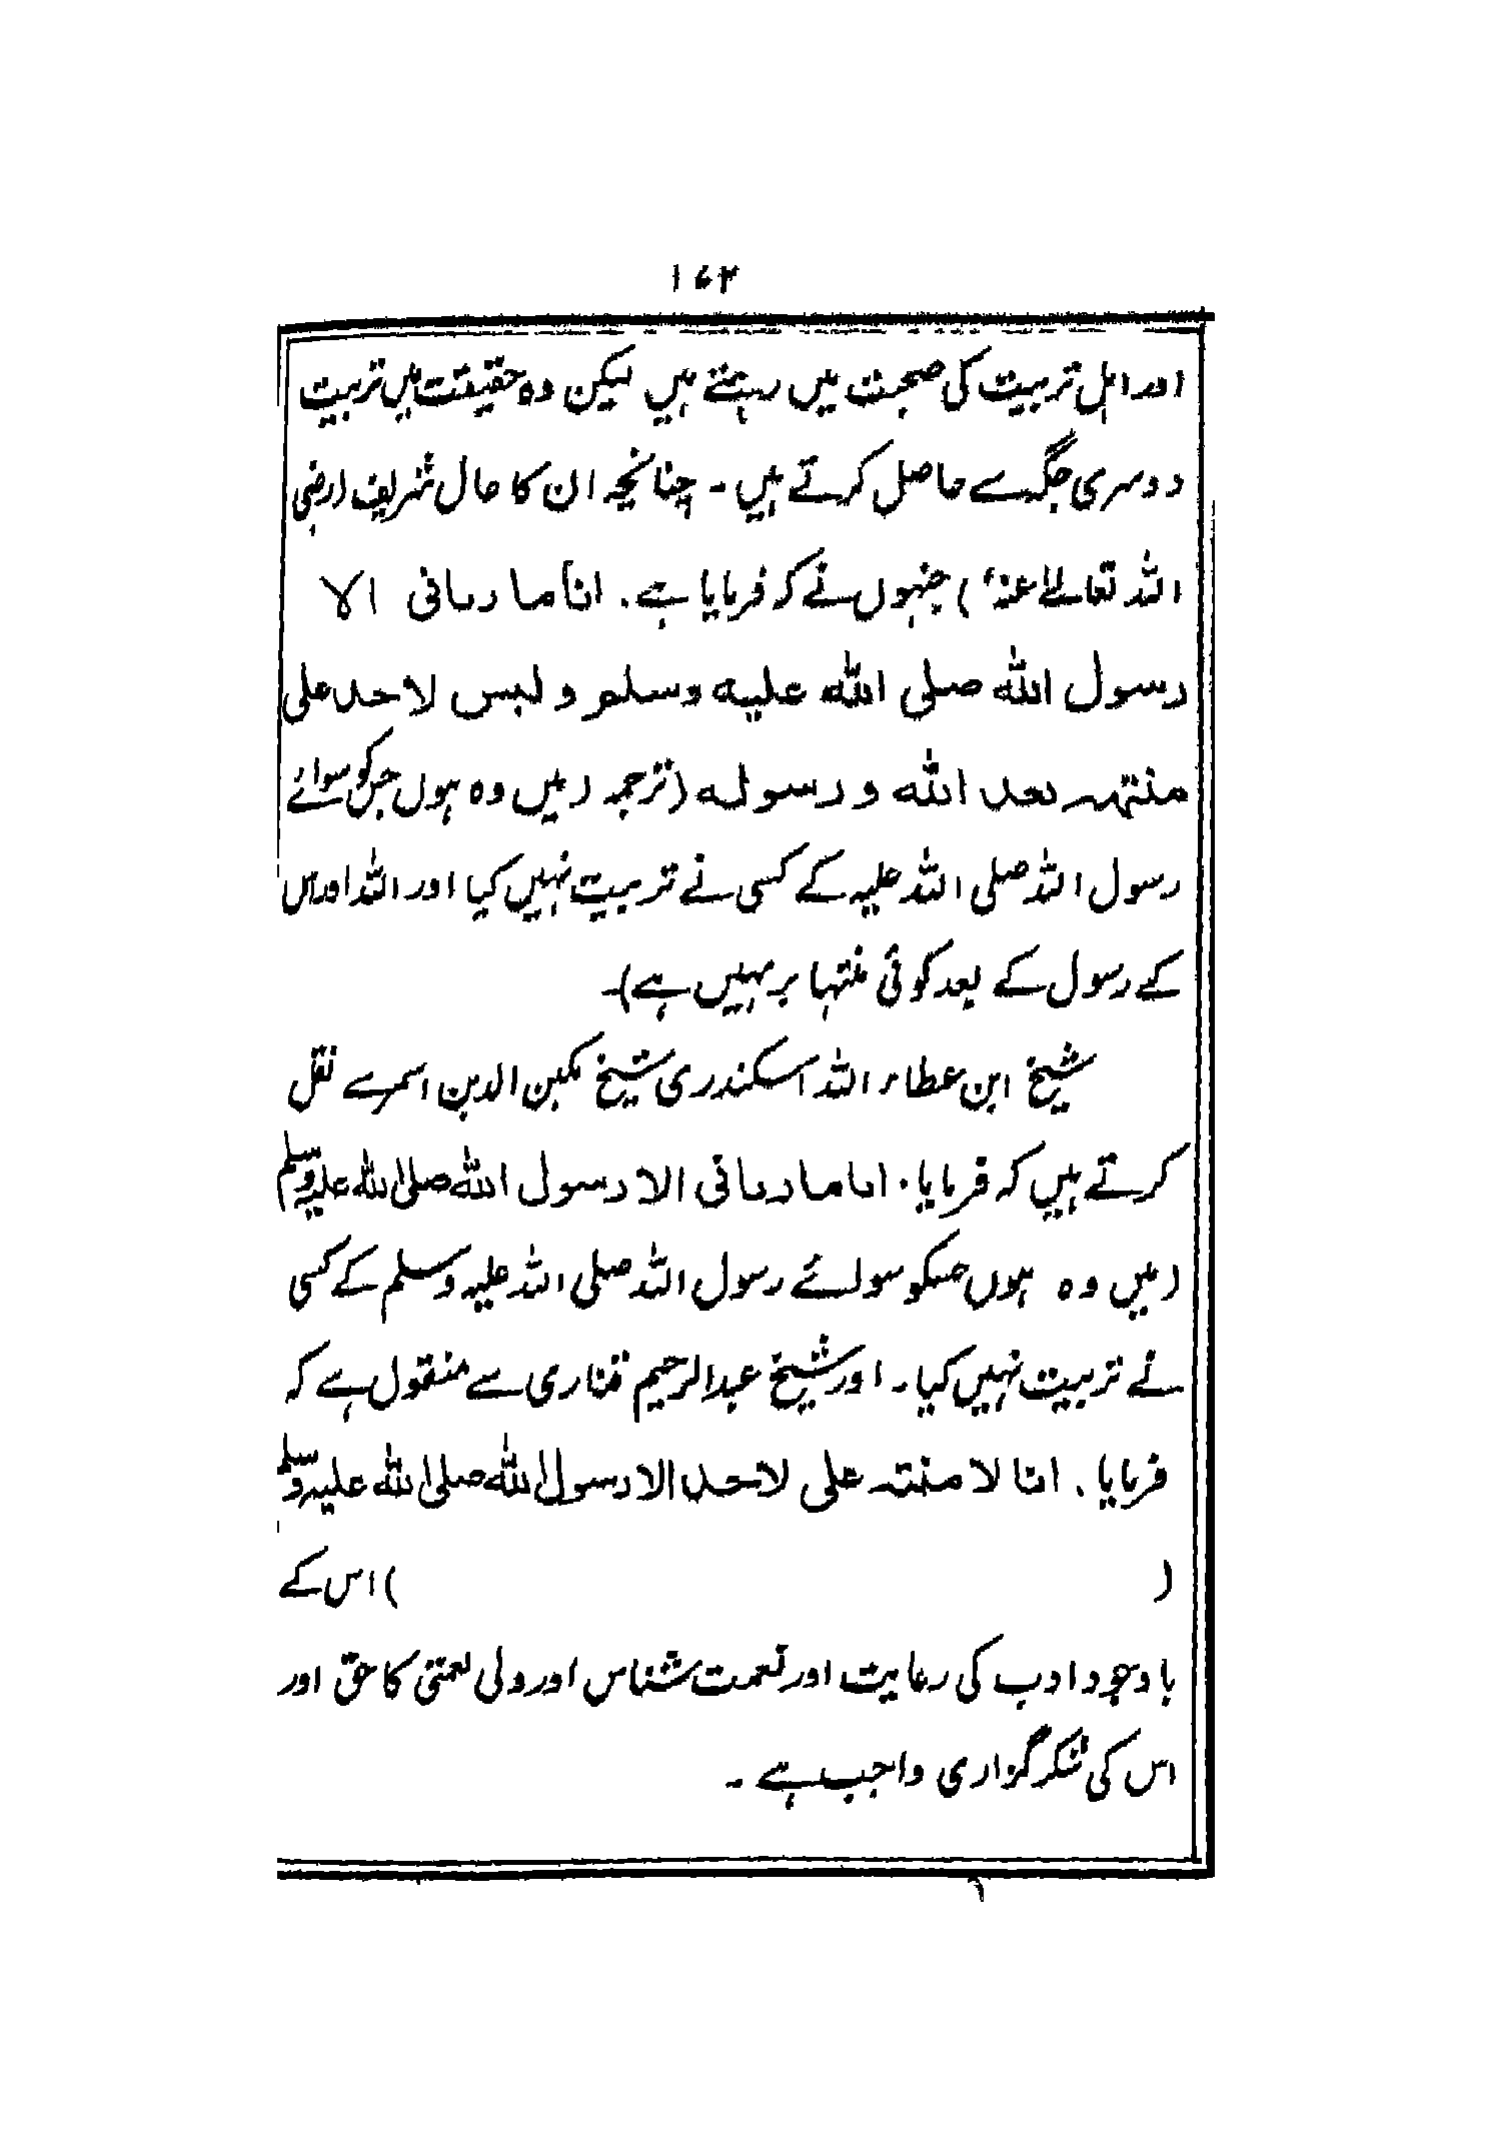 ۱۶۲
اور اہل تربیت کی صحبت میں رہتے ہیں لیکن وہ حقیقت میں تربیت
دوسری جگہ سے حاصل کرتے ہیں۔ چنانچہ ان کا حال شریف (رضی
اللہ تعالےٰ عنہٗ) جنہوں نے کہ فرمایا ہے۔ انا ما ربانی الا
رسول اللہ صلی اللہ علیه وسلم و لیس لاحد علی
منتهہ بعد اللہ و رسوله (ترجمہ (میں وہ ہوں جس کو سوائے
رسول اللہ صلی اللہ علیہ کے کسی نے تربیت نہیں کیا اور اللہ اور اس
کے رسول کے بعد کوئی منتہا پر نہیں ہے)۔
شیخ ابن عطاء اللہ اسکندری شیخ مکین الدین اسمر سے نقل
کرتے ہیں کہ فرمایا۔ انا ما ربانی الا رسول اللہ صلی اللہ علیہ وسلم
(میں وہ ہوں جسکو سوائے رسول اللہ صلی اللہ علیہ وسلم کے کسی
نے تربیت نہیں کیا۔ اور شیخ عبدالرحیم قناری سے منقول ہے کہ
فرمایا۔ انا لا منتہ علی لاحد الا رسول اللہ صلی اللہ علیہ وسلم
( ) اس کے
باوجود ادب کی رعایت اور نعمت شناس اور ولی نعمتی کا حق اور
اس کی شکر گزاری واجب ہے۔